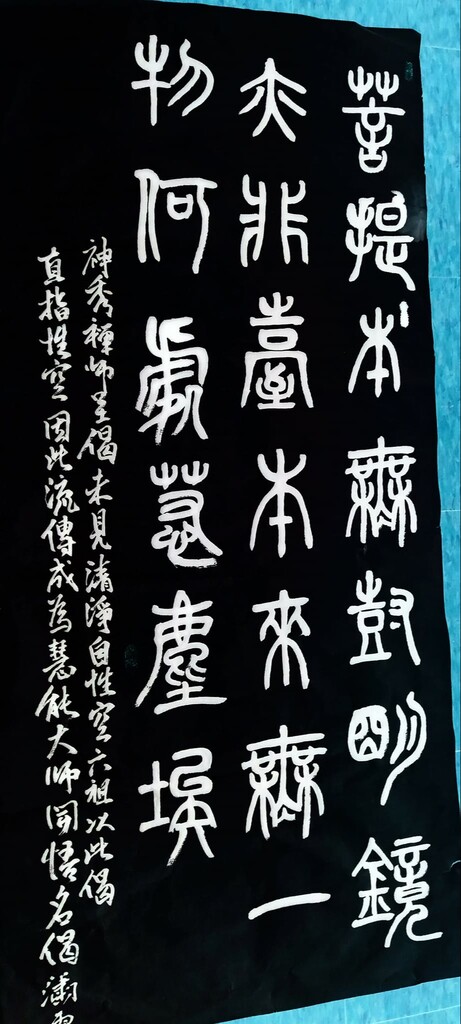 菩提本無鼓明鏡
亦非臺本來無一
物何處惹塵埃
神秀禪師呈偈未見清淨自性空六祖以此偈
直指性空因此流傳成為慧能大師開悟名偈潘